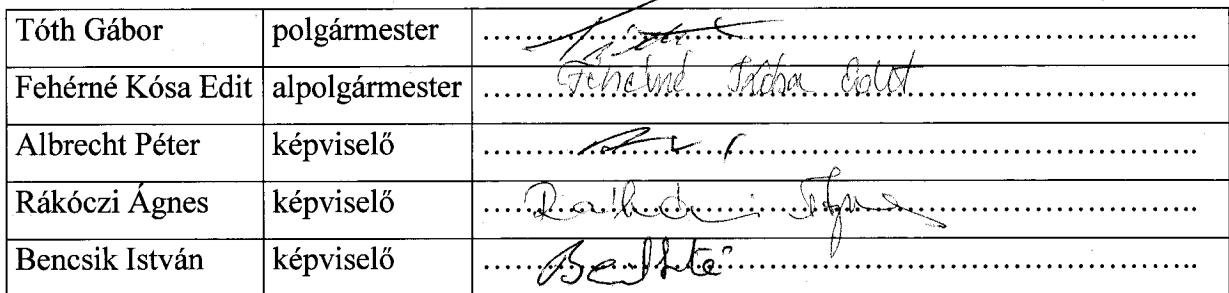 Tóth Gábor polgármester ....................
Fehérné Kósa Edit alpolgármester Fehérné Kósa Edit
Albrecht Péter képviselő ....................
Rákóczi Ágnes képviselő ....................
Bencsik István képviselő ....................